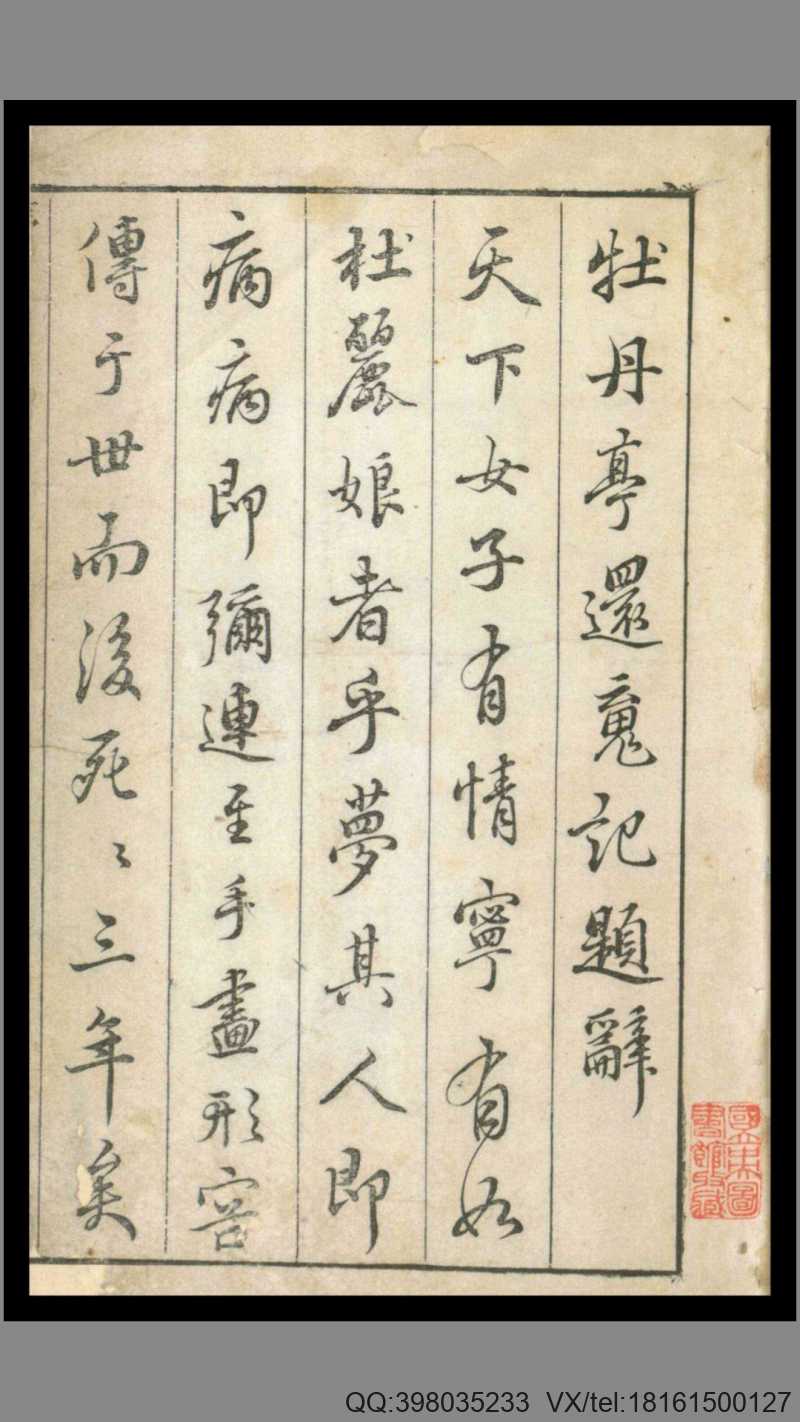 牡丹亭還魂記題辭
天下女子有情寧有如
杜麗娘者乎夢其人即
病病即彌連至手畫形容
傳于世而後死〻三年矣
國立中央圖書館收藏
QQ:398035233 VX/tel:18161500127